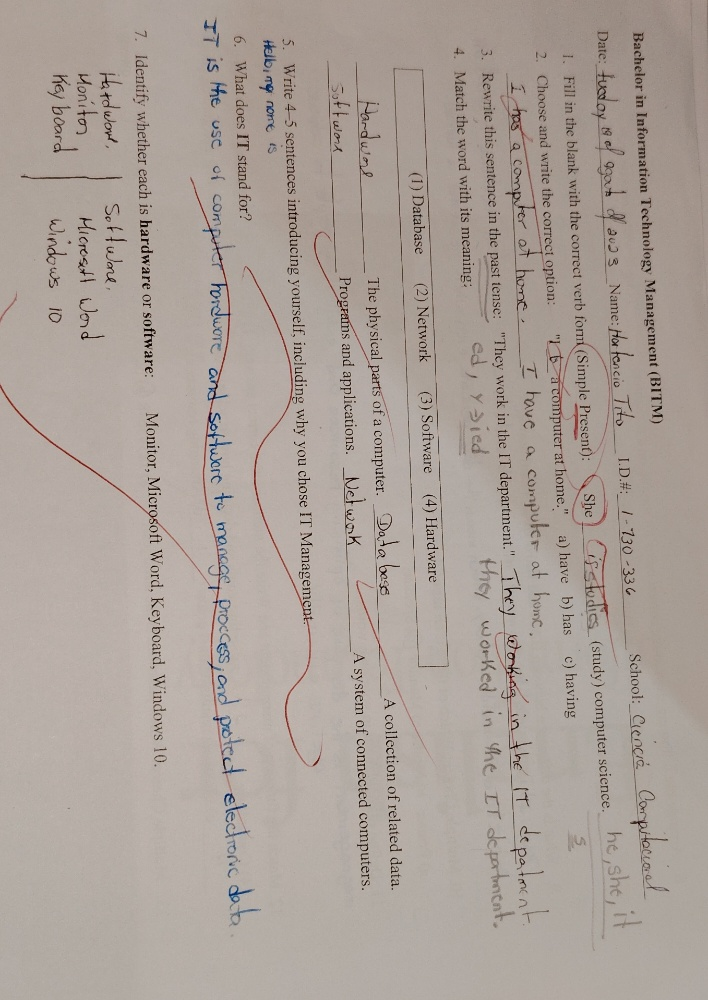 Bachelor in Information Technology Management (BITM)
Date: of 2023 Name: Hortencio Tito I.D.#: 1-730-336 School: Ciencia Computacional
1. Fill in the blank with the correct verb form (Simple Present): She is studies (study) computer science. he, she, it
s
2. Choose and write the correct option: "I a computer at home." a) have b) has c) having
I has a computer at home. I have a computer at home.
3. Rewrite this sentence in the past tense: "They work in the IT department." They working in the IT depatment
ed, y→ied they worked in the IT department.
4. Match the word with its meaning:
(1) Database (2) Network (3) Software (4) Hardware
Hardware The physical parts of a computer. Database A collection of related data.
Software Programs and applications. Network A system of connected computers.
5. Write 4–5 sentences introducing yourself, including why you chose IT Management.
Hello, my name is
6. What does IT stand for?
IT is the use of computer hardware and software to manage, proccess, and protect electronic data.
7. Identify whether each is hardware or software: Monitor, Microsoft Word, Keyboard, Windows 10.
Hardware, Software,
Monitor Microsoft Word
Keyboard Windows 10